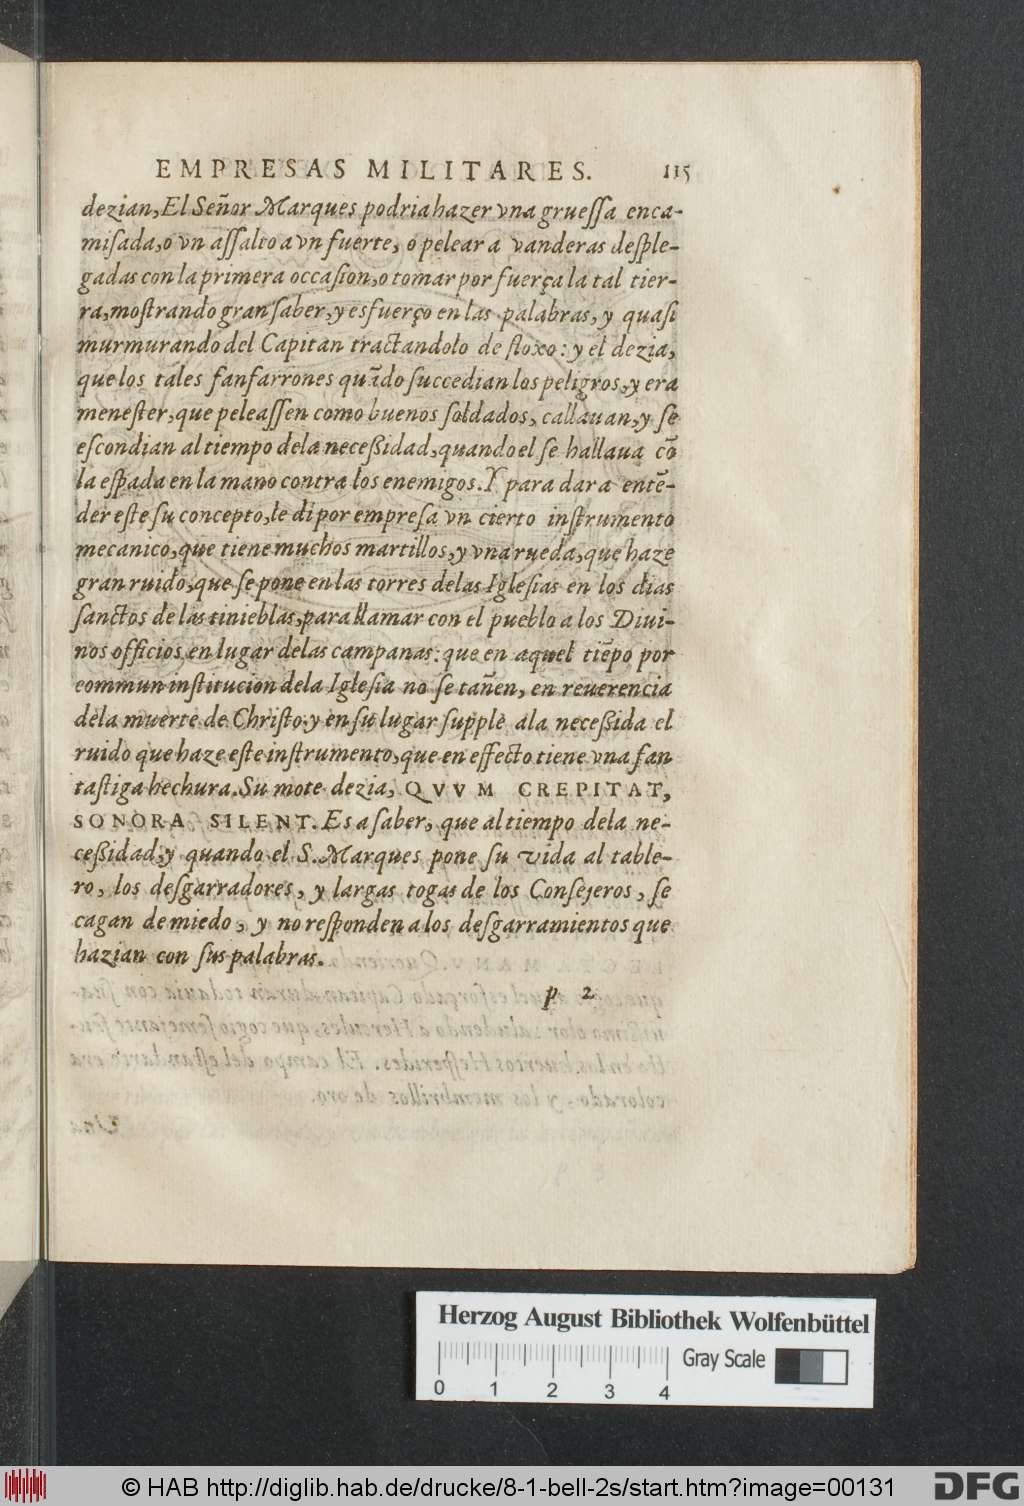 EMPRESAS MILITARES. 115
dezian, El Señor Marques podria hazer vna grueſſa enca-
miſada, o vn aſſalto a vn fuerte, o pelear a vanderas deſple-
gadas con la primera occaſion, o tomar por fuerça la tal tier-
ra, moſtrando gran ſaber, y esfuerço en las palabras, y quaſi
murmurando del Capitan tractandolo de floxo: y el dezia,
que los tales fanfarrones quãdo ſuccedian los peligros, y era
meneſter, que peleaſſen como buenos ſoldados, callauan, y ſe
eſcondian al tiempo dela neceßidad, quando el ſe hallaua cõ
la eſpada en la mano contra los enemigos. Y para dar a entẽ-
der eſte ſu concepto, le di por empreſa vn cierto inſtrumento
mecanico, que tiene muchos martillos, y vna rueda, que haze
gran ruido, que ſe pone en las torres delas Igleſias en los dias
ſanctos de las tinieblas, para llamar con el pueblo a los Diui-
nos officios, en lugar delas campanas: que en aquel tiẽpo por
commun inſtitucion dela Igleſia no ſe tañen, en reuerencia
dela muerte de Chriſto: y en ſu lugar ſupple ala neceßida el
ruido que haze eſte inſtrumento, que en effecto tiene vna fan
taſtiga hechura. Su mote dezia, QVVM CREPITAT,
SONORA SILENT. Es a ſaber, que al tiempo dela ne-
ceßidad, y quando el S. Marques pone ſu vida al table-
ro, los deſgarradores, y largas togas de los Conſejeros, ſe
cagan de miedo, y no reſponden a los deſgarramientos que
hazian con ſus palabras.
p 2
Herzog August Bibliothek Wolfenbüttel
Gray Scale
0 1 2 3 4
© HAB http://diglib.hab.de/drucke/8-1-bell-2s/start.htm?image=00131
DFG